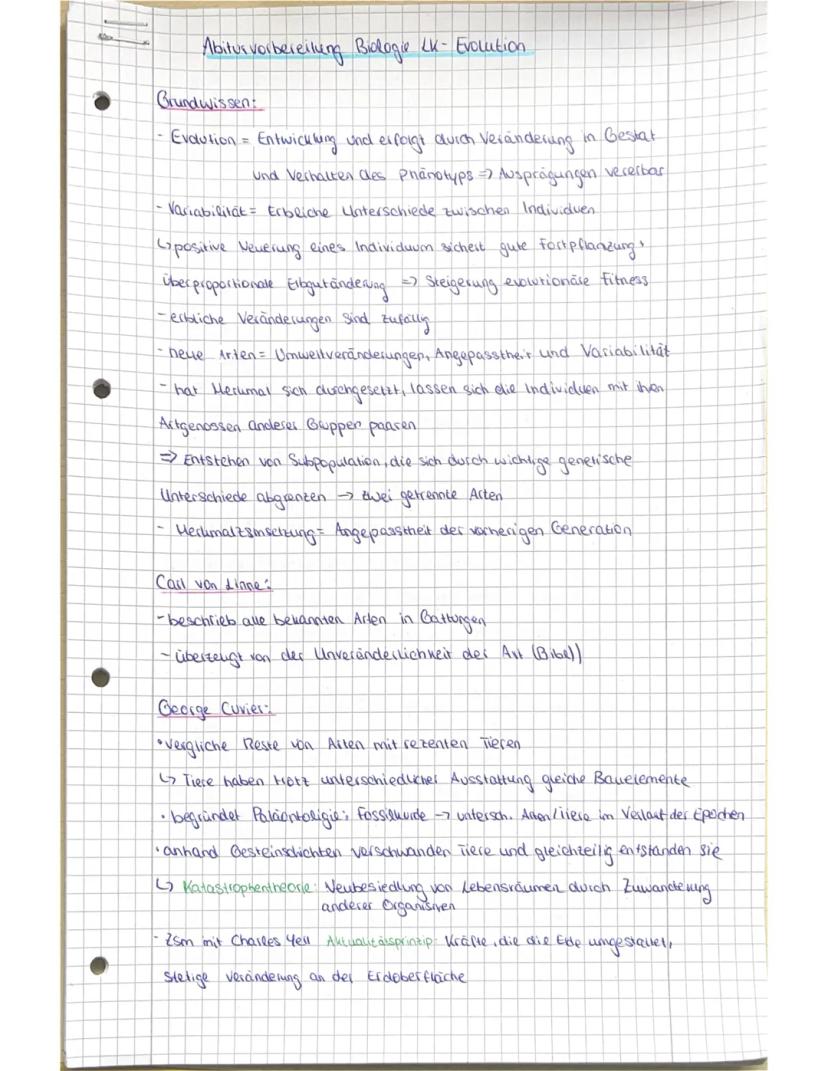 Abiturvorbereitung Biologie LK - Evolution
Grundwissen:
- Evolution = Entwicklung und erfolgt durch Veränderung in Gestalt
und Verhalten des Phänotyps => Ausprägungen vererbar
- Variabilität = Erbliche Unterschiede zwischen Individuen
↳ positive Neuerung eines Individuum sichert gute Fortpflanzung,
überproportionale Erbgutänderung => Steigerung evolutionäre Fitness
- erbliche Veränderungen sind zufällig
- neue Arten = Umweltveränderungen, Angepasstheit und Variabilität
- hat Merkmal sich durchgesetzt, lassen sich die Individuen mit ihren
Artgenossen anderer Gruppen paaren
=> Entstehen von Subpopulation, die sich durch wichtige genetische
Unterschiede abgrenzen → zwei getrennte Arten
- Merkmalzsmsetzung = Angepasstheit der vorherigen Generation
Carl von Linne:
- beschrieb alle bekannten Arten in Gattungen
- überzeugt von der Unveränderlichkeit der Art (Bibel)
George Cuvier:
• vergliche Reste von Arten mit rezenten Tieren
↳ Tiere haben trotz unterschiedlicher Ausstattung gleiche Bauelemente
• begründet Paläontoligie; Fossilkunde → untersch. Arten/Tiere im Verlauf der Epochen
• anhand Gesteinschichten verschwanden Tiere und gleichzeitig entstanden sie
↳ Katastrophentheorie: Neubesiedlung von Lebensräumen durch Zuwanderung
anderer Organismen
- Zsm mit Charles Yell Aktualitätsprinzip: Kräfte, die die Erde umgestaltet,
stetige Veränderung an der Erdoberfläche